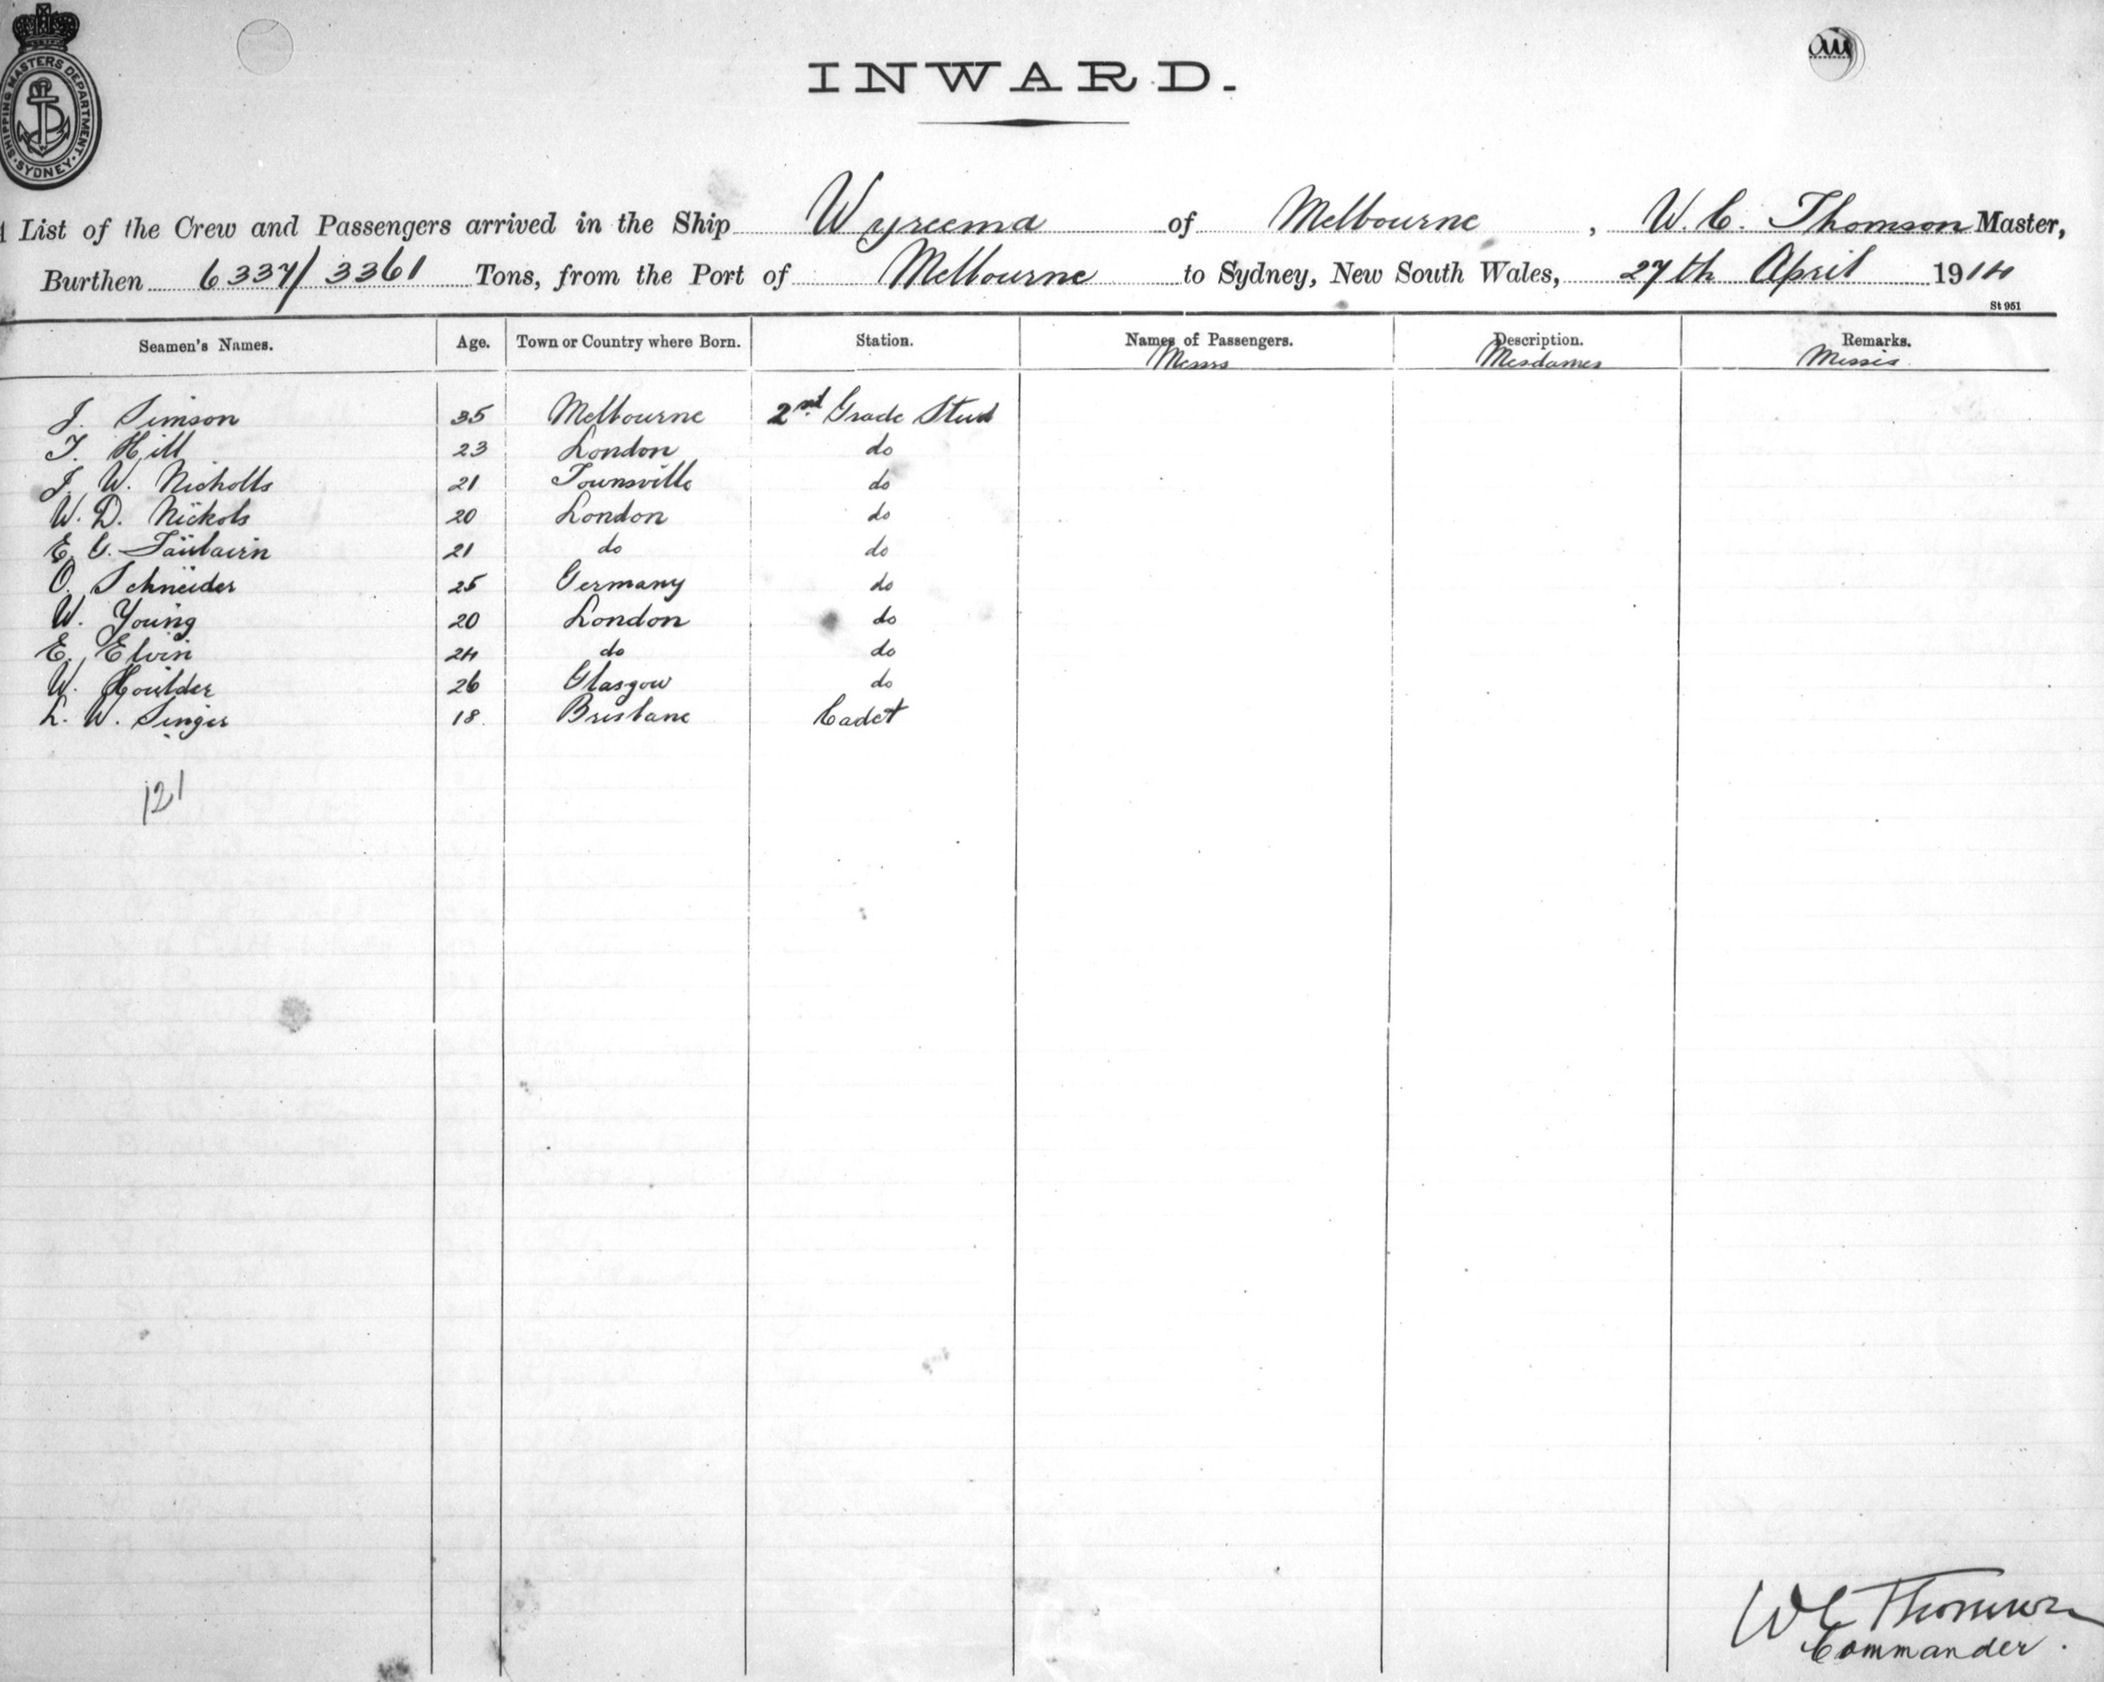 SHIPPING MASTERS DEPARTMENT
SYDNEY
INWARD.
List of the Crew and Passengers arrived in the Ship Wyreema of Melbourne, W. C. Thomson Master,
Burthen 6337/3361 Tons, from the Port of Melbourne to Sydney, New South Wales, 27th April 1914
St 951
Seamen's Names. Age. Town or Country where Born. Station. Names of Passengers. Description. Remarks.
Messrs Mesdames Misses
J. Simson 35 Melbourne 2nd Grade Stwd
T. Hill 23 London do
J. W. Nicholls 21 Townsville do
W. D. Nickols 20 London do
E. G. 21 do do
O. Schneider 25 Germany do
W. Young 20 London do
E. Elvin 24 do do
W. Houlder 26 Glasgow do
L. W. Singer 18. Brisbane Cadet
121
W C Thomson
Commander.